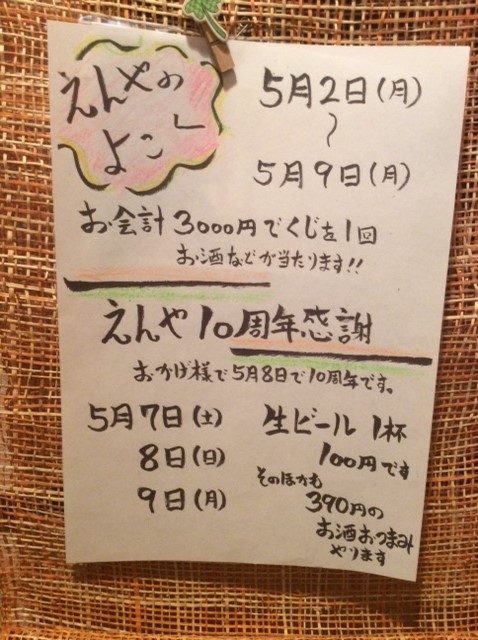 えんやの
よこく
5月2日(月)
〜
5月9日(月)
お会計3000円でくじを1回
お酒などが当たります!!
えんや10周年感謝
おかげ様で5月8日で10周年です。
5月7日(土)
8日(日)
9日(月)
生ビール 1杯
100円です
そのほかも
390円の
お酒おつまみ
やります